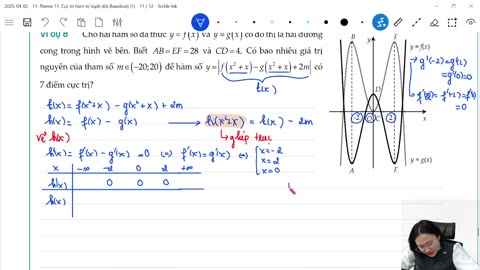 2025-04-02 11. Theme 11. Cực trị hàm trị tuyệt đối (handout) (1) 11 / 12 - Scible Ink
Ví dụ 8 Cho hai hàm số đa thức y = f(x) và y = g(x) có đồ thị là hai đường
cong trong hình vẽ bên. Biết AB = EF = 28 và CD = 4. Có bao nhiêu giá trị
nguyên của tham số m ∈ (-20;20) để hàm số y = |f(x² + x) - g(x² + x) + 2m| có
7 điểm cực trị?
h(x)
h(x) = f(x²+x) - g(x²+x) + 2m
h(x) = f(x) - g(x) → h(x²+x) = h(x) - 2m
↳ ghép trục
vẽ h(x)
h'(x) = f'(x) - g'(x) = 0 ⇔ f'(x) = g'(x) ⇔ x = -2
x = 2
x = 0
x -∞ -2 0 2 +∞
h'(x) 0 0 0
h(x)
y
B F
y = f(x)
D
-2 C 2 x
A E
y = g(x)
g'(-2) = g'(2)
= g'(0) = 0
= 0